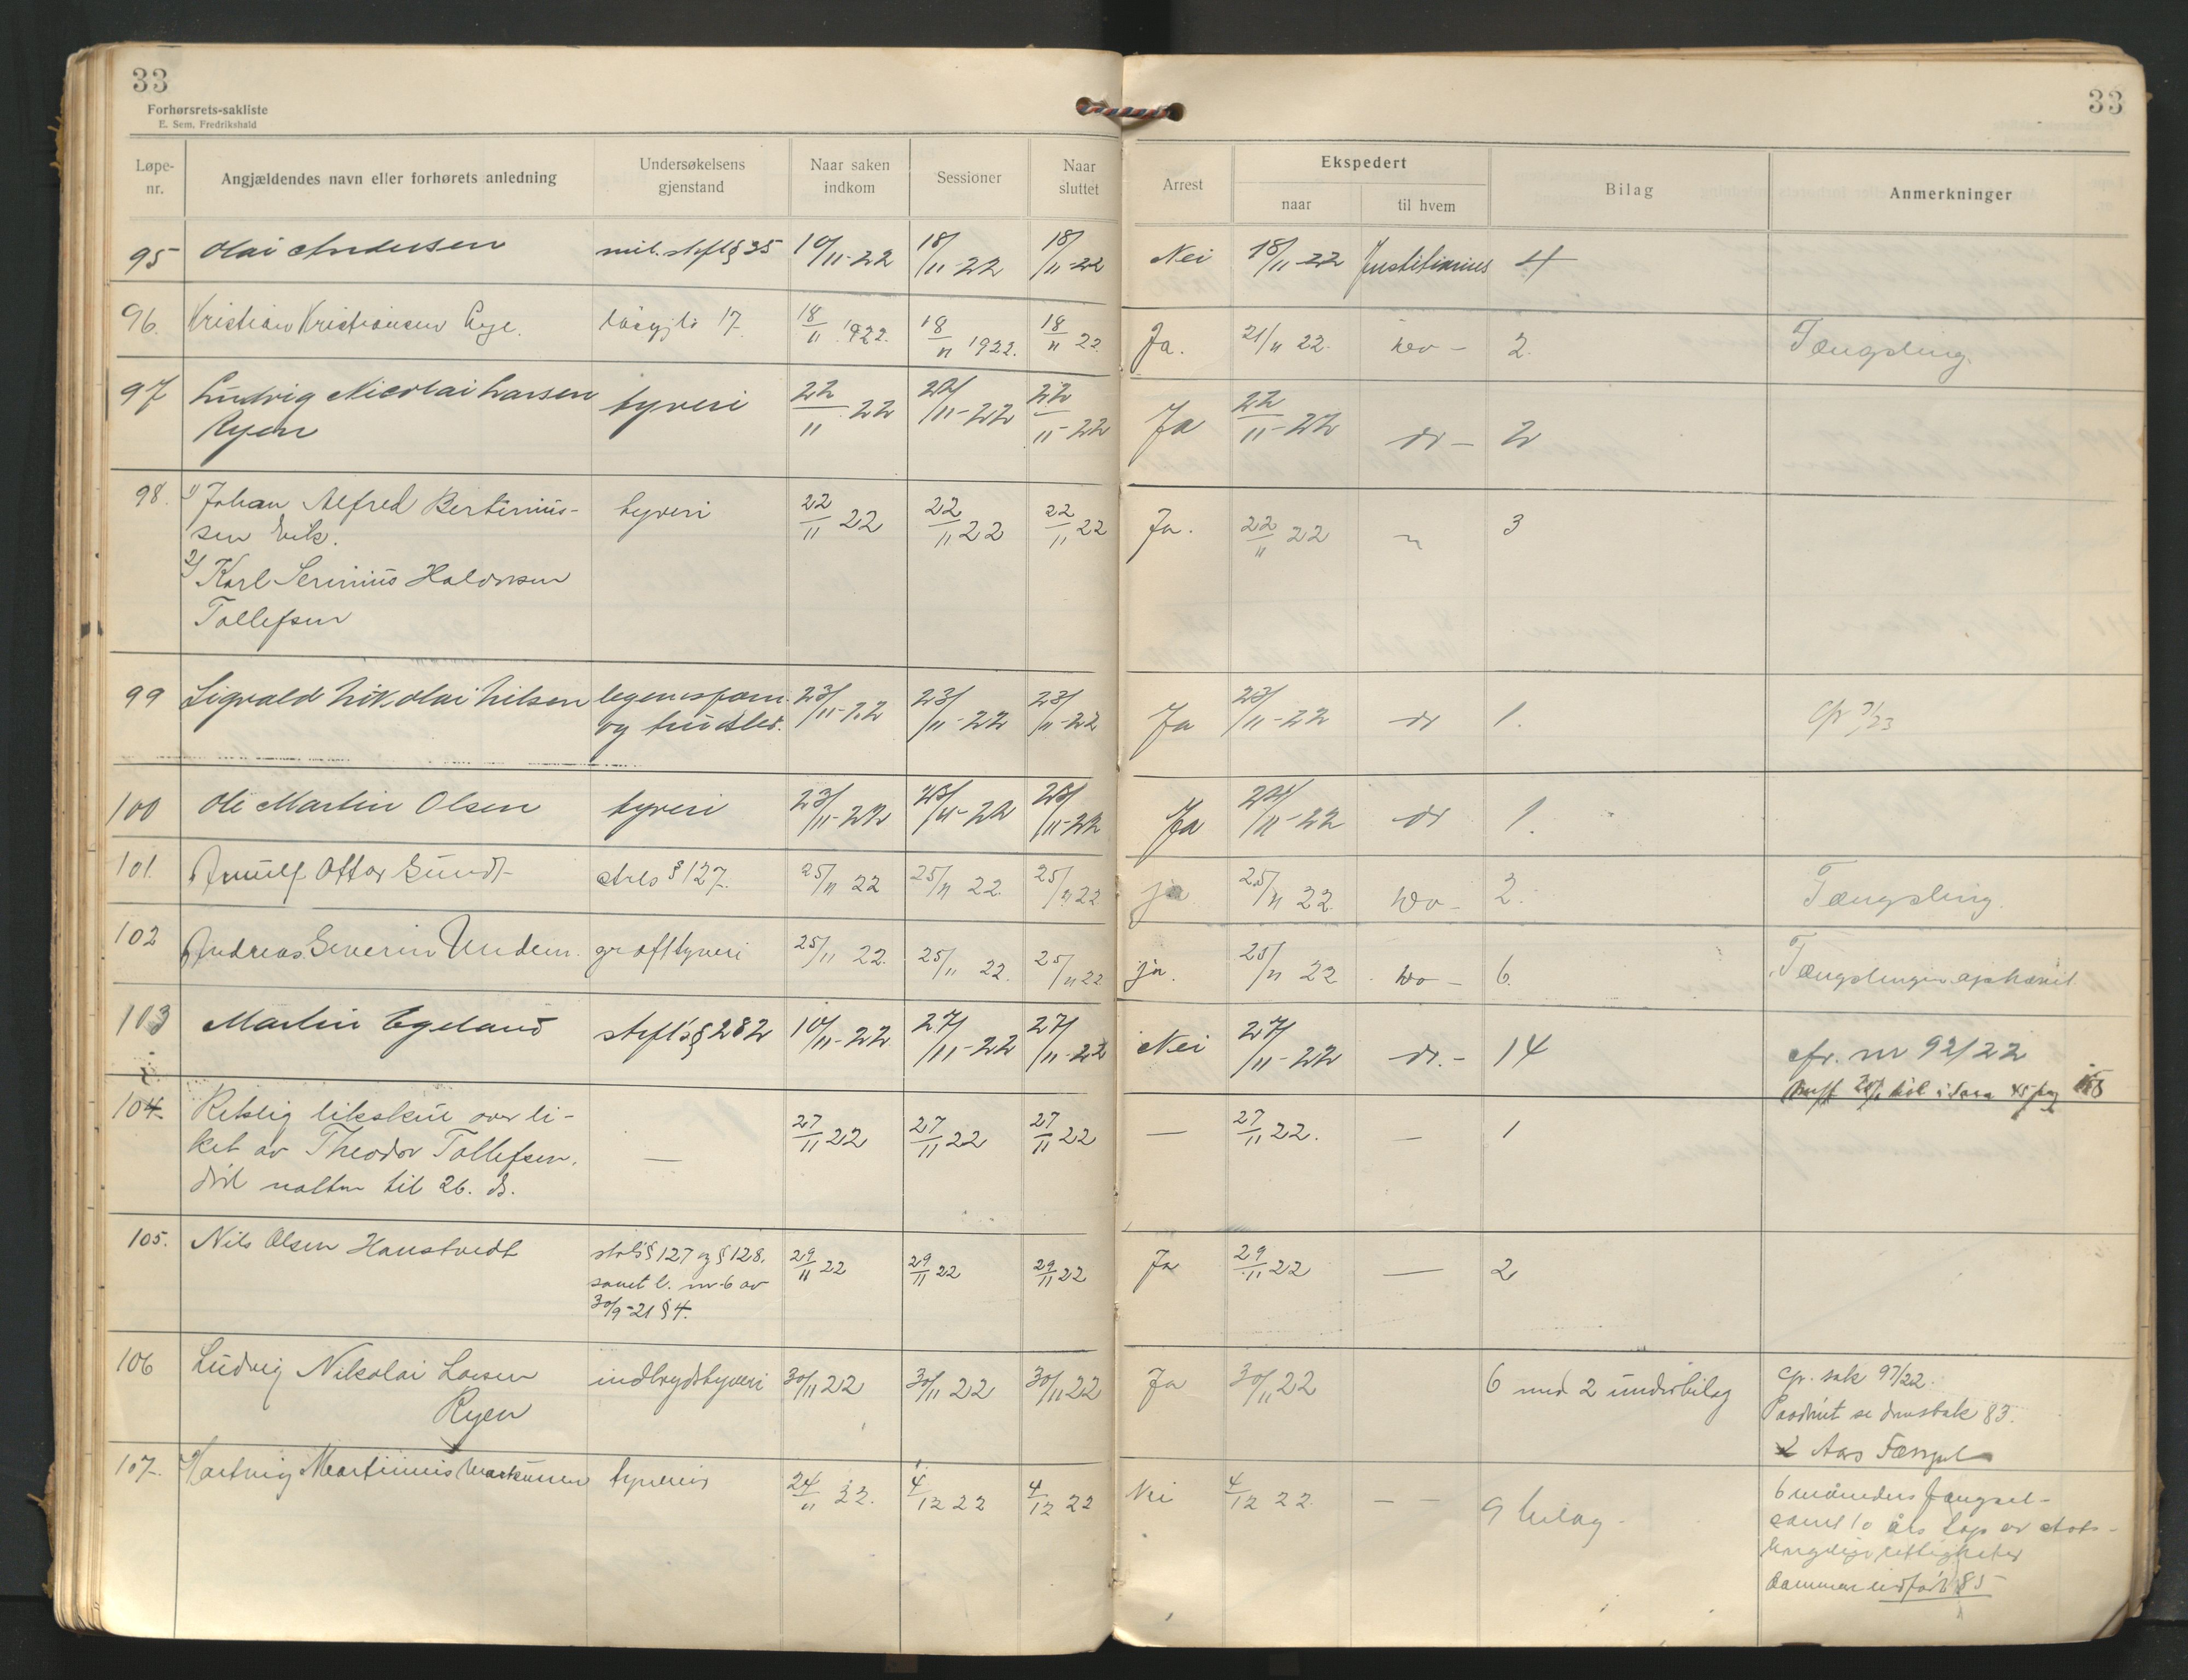 33
Forhørsrets-sakliste
E. Sem, Fredrikshald
33
Løpe-nr. Angjældendes navn eller forhørets anledning Undersøkelsens gjenstand Naar saken indkom Sessioner Naar sluttet Arrest Ekspedert naar til hvem Bilag Anmerkninger
95 Olai Andersen mil. strfl § 35 10/11-22 18/11-22 18/11-22 Nei 18/11-22 Justitiarius 4
96. Kristian Kristiansen 17 18/11 1922. 18/11 1922. 18/11 22 Ja. 21/11 22. 2. Fængsling.
97 Ludvig Nicolai Larsen tyveri 22/11 22 22/11-22 22/11-22 Ja 22/11-22 do - 2
Ryen
98. 1) Johan Alfred Bertinius- tyveri 22/11 22 22/11 22 22/11 22 Ja. 22/11 22 " 3
sen Vik.
2) Karl Serinius Halvorsen
Tollefsen
99 Sigvald Nikolai Nilsen legemsforn. 23/11-22 23/11-22 23/11-22 Ja 23/11-22 do 1.
og trudsler.
100 Ole Martin Olsen tyveri 23/11-22 23/11-22 23/11-22 Ja 24/11-22 do 1.
101. Arnulf Ottar Gundt § 127. 25/11 22 25/11 22. 25/11 22 ja 25/11 22 do - 2. Fængsling.
102 Andreas Severin Undem. groft tyveri 25/11 22. 25/11 22. 25/11 22 ja. 25/11 22 do - 6. Fængslingen ophævet.
103 Martin Egeland strfl's § 282 10/11-22 27/11-22 27/11-22 Nei 27/11-22 do. - 14 cfr. nr 92/22
104. Retslig likskue over li- — 27/11 22 27/11 22 27/11 22 — 27/11 22. — 1
ket av Theodor Tollefsen,
død natten til 26. ds.
105. Nils Olsen Haustvedt strls § 127 og § 128. 29/11 22 29/11 22 29/11 22 Ja 29/11 22 — 2
samt l. nr 6 av
30/9-21 § 4.
106 Ludvig Nikolai Larsen indbrudstyveri 30/11 22 30/11 22 30/11 22 Ja 30/11 22 6 med 2 underbilag cfr. sak 97/22.
Ryen Paadømt se domsbok 83.
2 Aars Fængsel
107. Hartvig Martinius Markussen tyverier 24/11 22. 4/12 22 4/12 22 Nei 4/12 22. — — 9 bilag - 6 måneders fængsel -
samt 10 års tap av stats-
borgerlige rettigheter
85